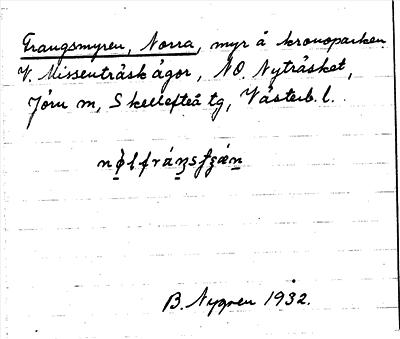 Frangsmyren, Norra, myr å kronoparken
V. Missenträsk ägor, NO. Nyträsket,
Jörn sn, Skellefteå tg, Västerb. l.
B. Nygren 1932.